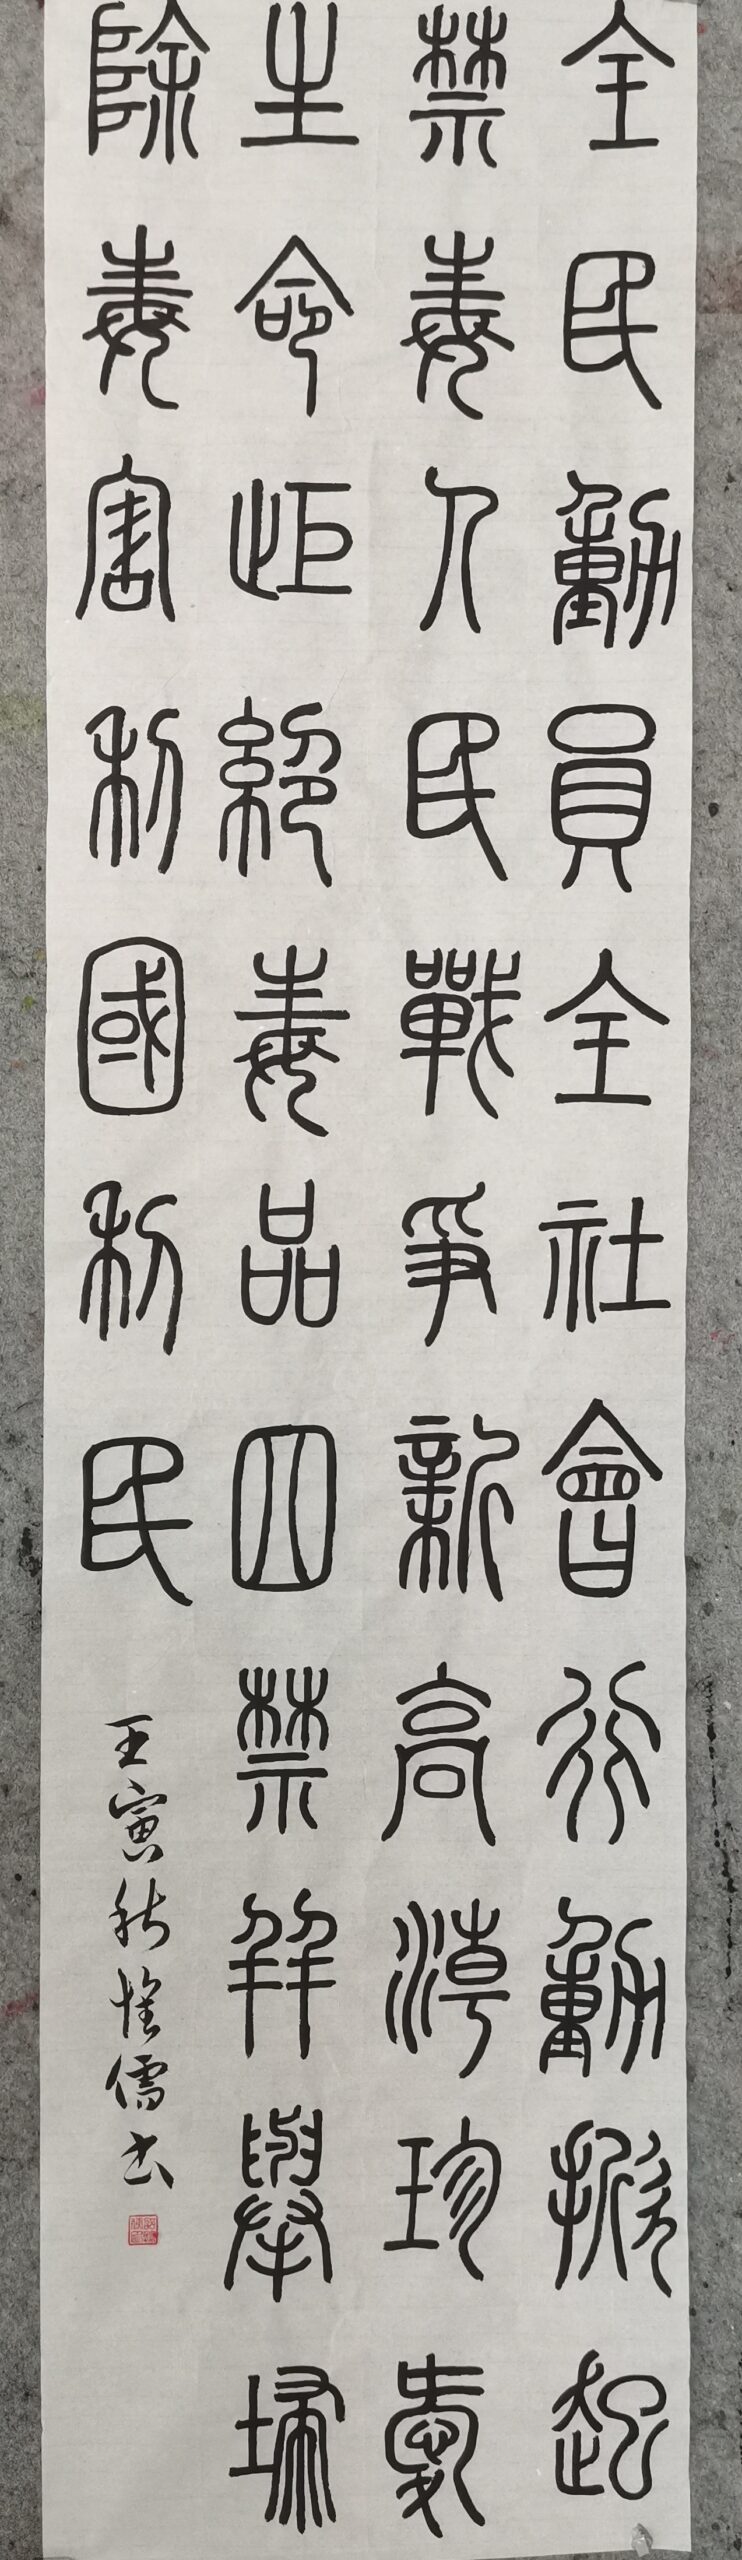 全民動員全社會行動掀起
禁毒人民戰爭新高潮珍愛
生命拒絕毒品四禁並舉掃
除毒害利國利民
壬寅秋惟儒书